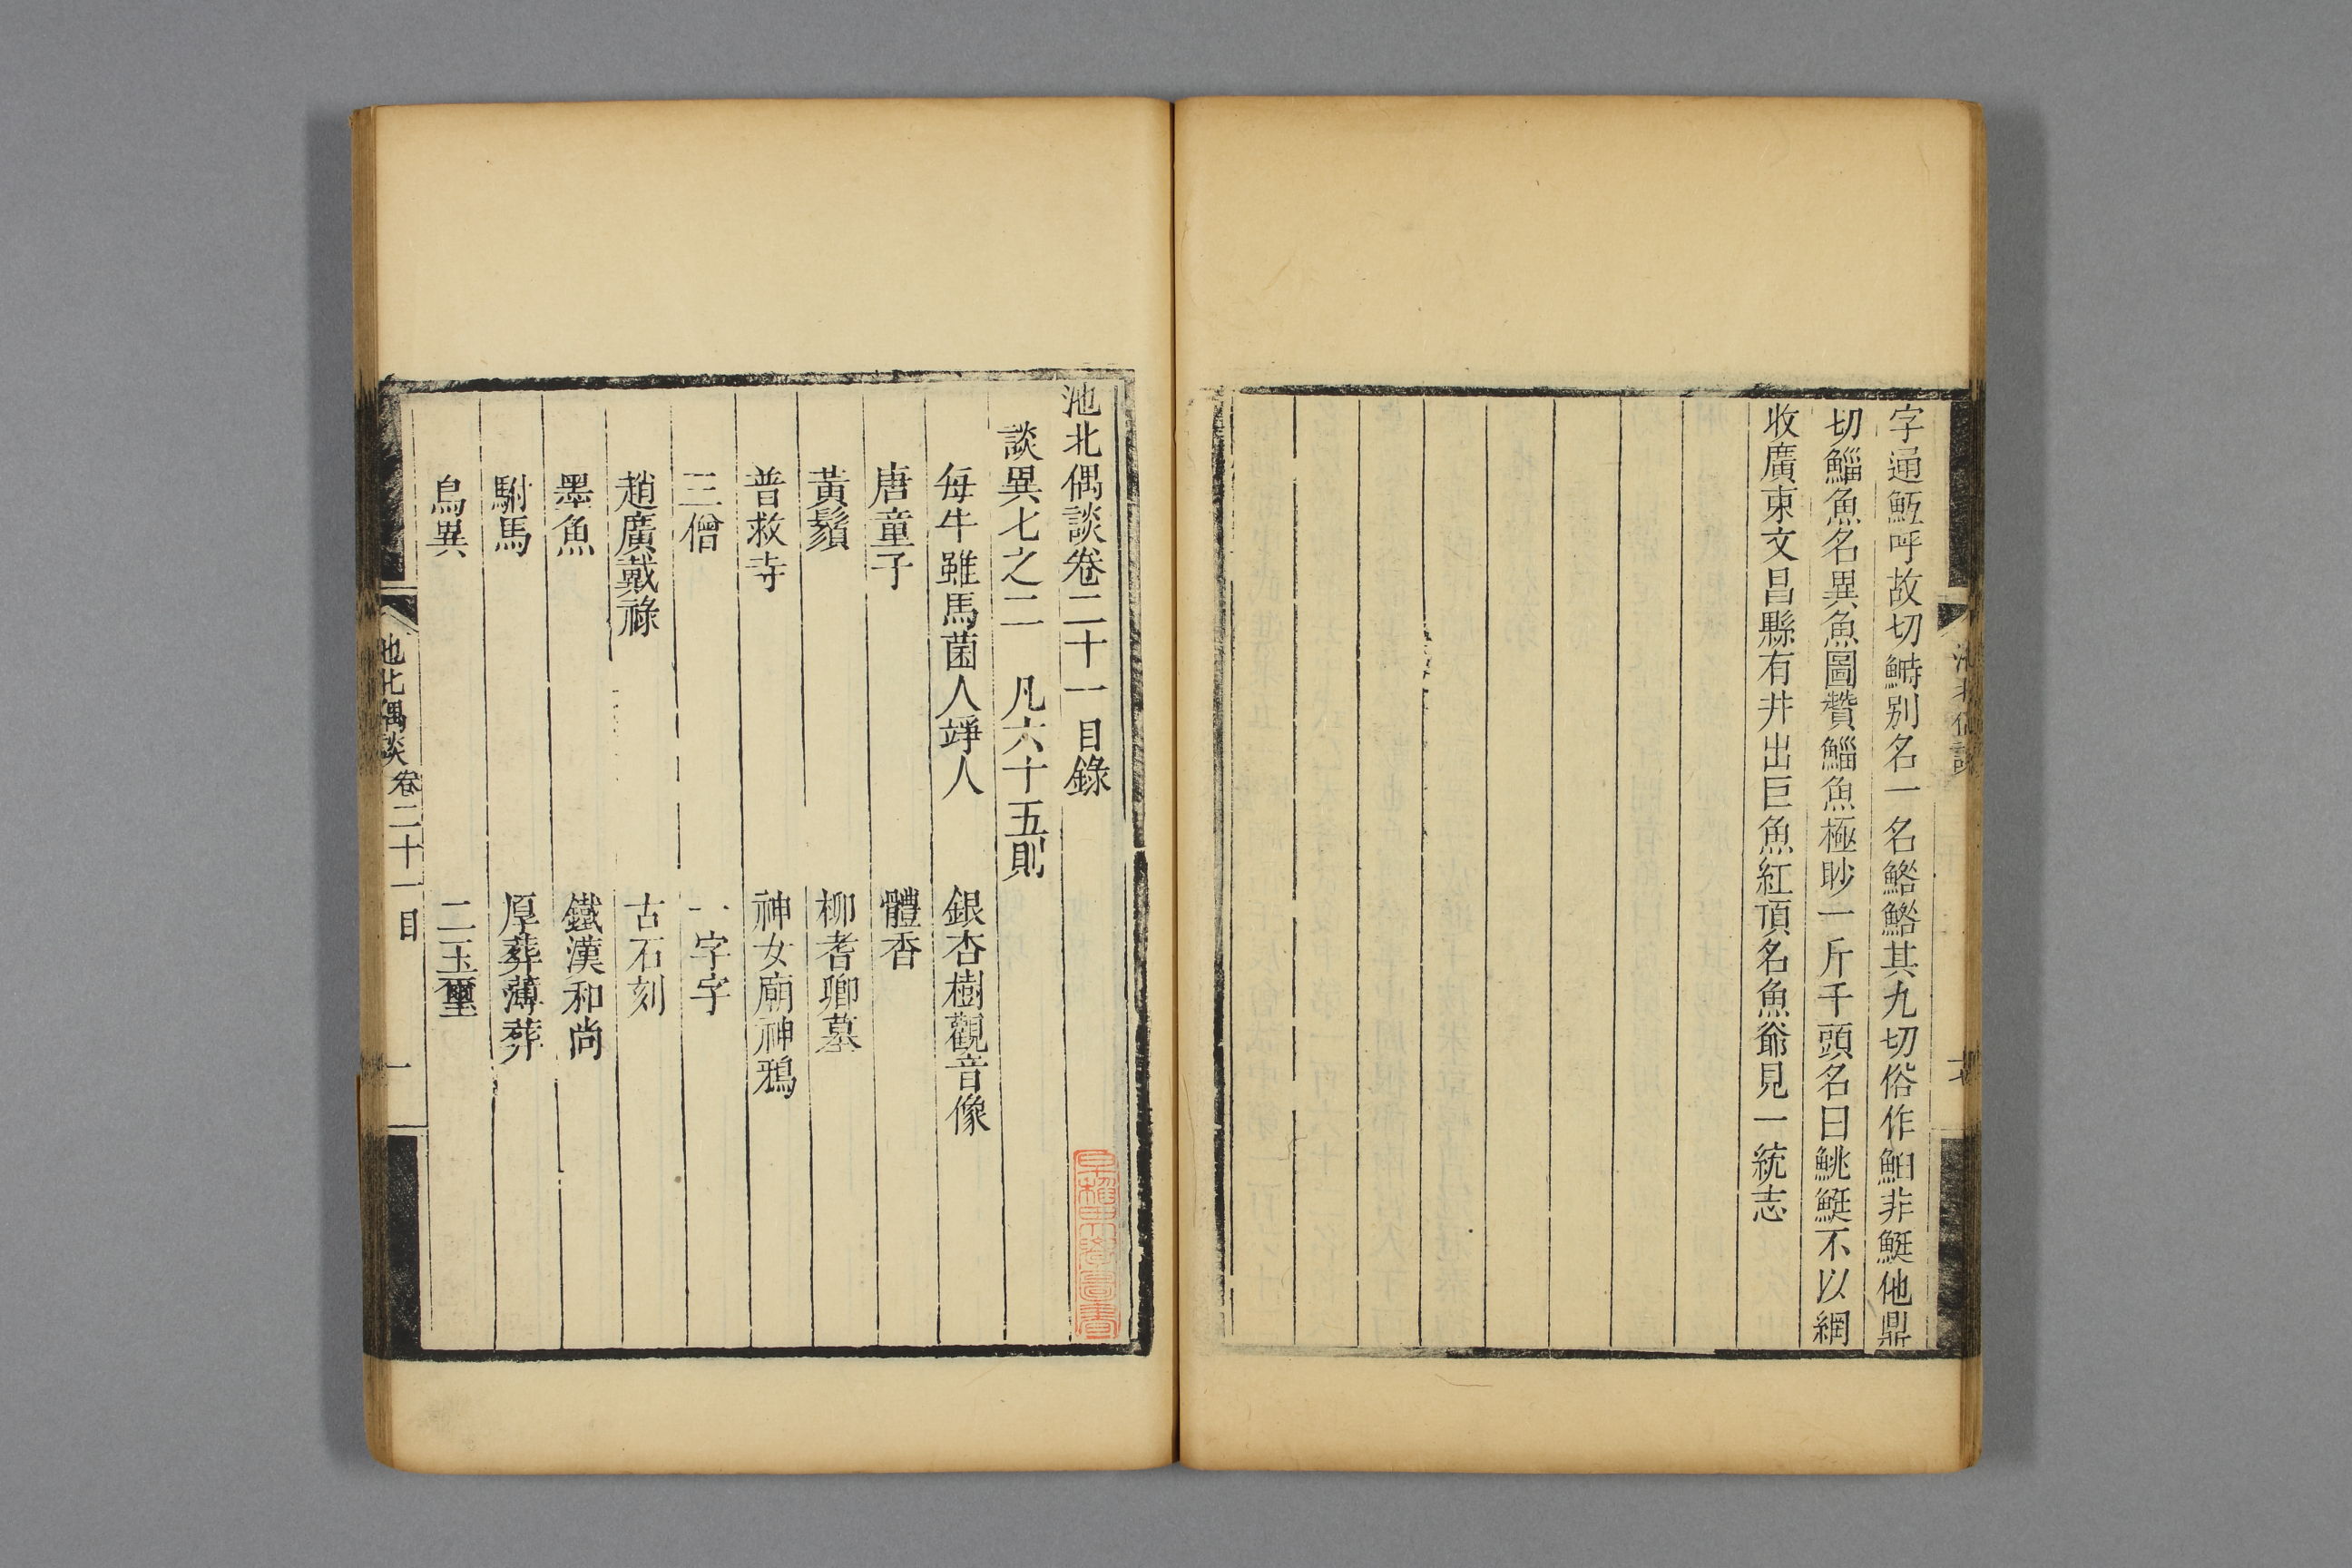 字通䱍呼故切鰣别名一名鮥鮥其九切俗作鮊非鯅他鼎
切鯔魚名異魚圖贊鯔魚極眇一斤千頭名曰鮡鯅不以網
收廣東文昌縣有井出巨魚紅頂名魚爺見一統志
池北偶談卷二十一目錄
談異七之二 凡六十五則
每牛雖馬菌人竫人 銀杏樹觀音像
唐童子 體香
黃鬚 柳耆卿墓
普救寺 神女廟神鴉
三僧 一字字
趙廣戴祿 古石刻
墨魚 鐵漢和尚
駙馬 厚葬薄葬
鳥異 二玉璽
池北偶談 卷二十一目 一